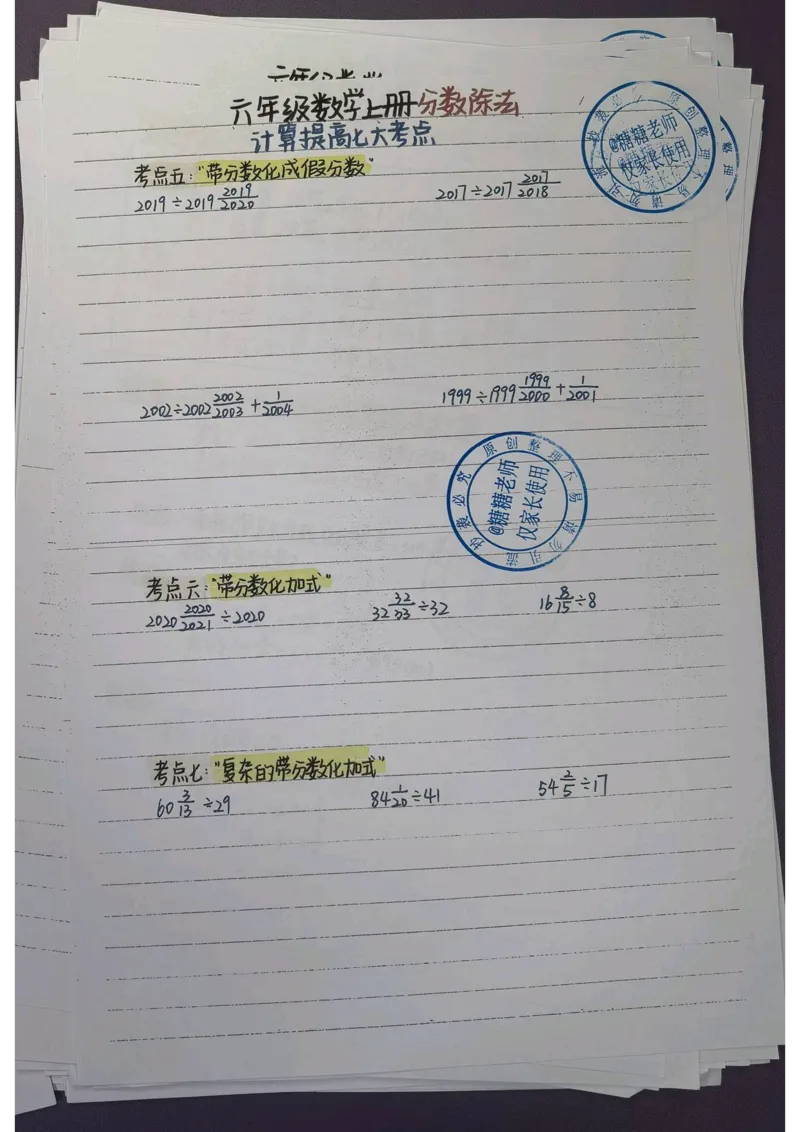 六年级数学上册分数除法
计算提高七大考点
考点五:"带分数化成假分数"
2019÷2019 2019/2020 2017÷2017 2017/2018
2002÷2002 2002/2003 + 1/2004 1999÷1999 1999/2000 + 1/2001
考点六:"带分数化加式"
2020 2020/2021 ÷2020 32 32/33 ÷32 16 8/15 ÷8
考点七:"复杂的带分数化加式"
60 3/13 ÷29 84 1/20 ÷41 54 2/5 ÷17
原创整理不易请勿引流抄袭必究
@糖糖老师
仅家长使用
原创整理不易请勿引流抄袭必究
@糖糖老师
仅家长使用